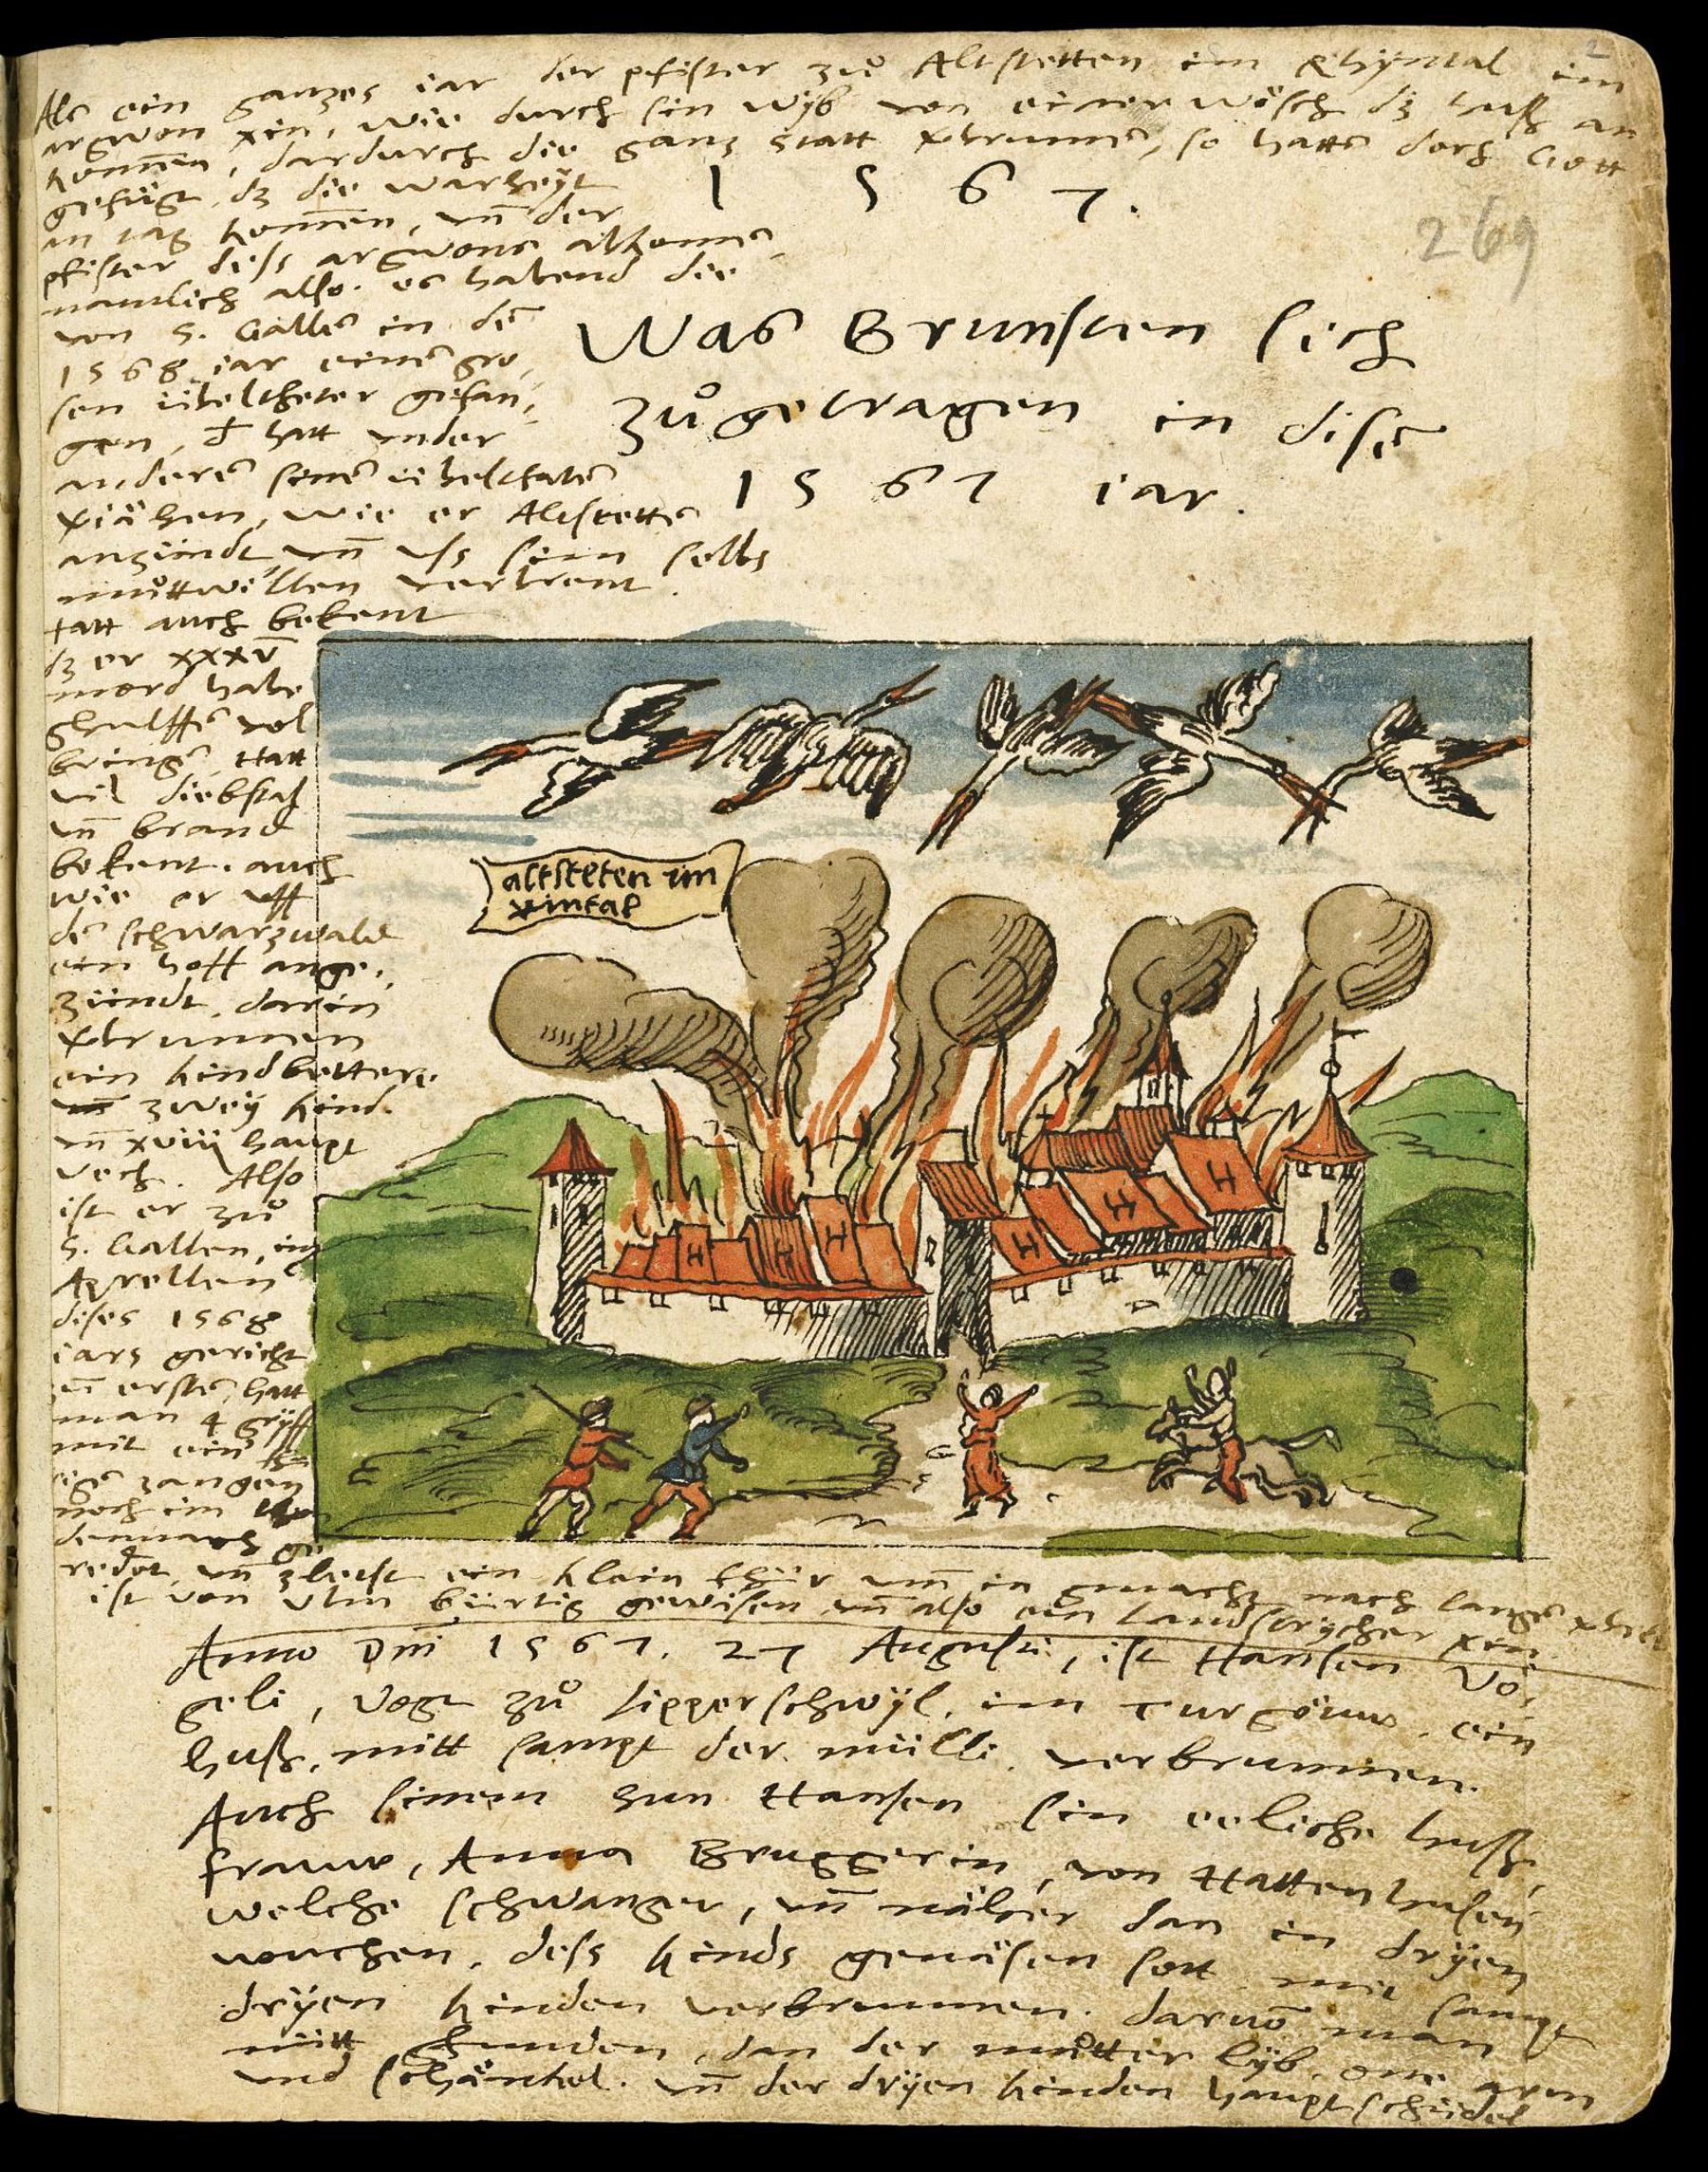 2
Als ein ganzes iar der pfister zů Altstetten im Rhyntal im
argwon xin, wie durch sin wyb von einer wösch dz huß an
kom̄en, dardurch die ganz statt xbrunnē, so hatt doch Gott
gefügt dz die warheyt
an tag kom̄en, vn̄ der
pfister dess argwons abkomē,
namlich also. es habend die
von S. Gallē in dē
1568 iar einē gro,
sen übeltheter gefan,
gen, d hatt vnder
anderē sinē übelthatē
xiähen, wie er Altstettē
anzündt, vn̄ vss sim selbs
můttwillen verbrent.
hatt auch bekent
dz er xxxv
mord habe
ghulffē vol
bringē. Hatt
vil diebstal
vn̄ brand
bekent. auch
wie er vff
dē schwarzwald
ein hoff ange,
zündt, darin
xbrunnen
ein kindbettere
vn̄ zwey kind.
vn̄ xviij haupt
vech. Also
ist er zů
S. Gallen, im
Aprellen
dises 1568
iars gericht
zū erstē, hatt
man 4 gryff
mit ein
igē zangen
noch im
dennach ge
redet, vn̄ zletst ein klein fhür vm̄ in gmacht nach langē
ist von Vlm bürtig gewesen vn̄ also ein landstrycher xin
1 5 6 7.
269
Was Brunsten sich
zůgetragen in disē
1567 iar.
altsteten im
rintal
Anno Dni 1567. 27 Augusti, ist Hansen Vö,
geli, Vogt zů Lipperschwyl, im Turgöuw, ein
huß, mitt sampt der mülli verbrunnen.
Auch sinem sun Hansen sin eeliche huß,
frauw, Anna Bruggerin, von Hattenhusen,
welche schwanger, vn̄ nälher dan in dryen
wuchen, dess kinds genäsen sott mit sampt
dryen kinden verbrunnen. daruō man
nütt funden, dan der můtter lyb, one arm
vnd schänkel. vn̄ der dryen kinden haupt schüdel